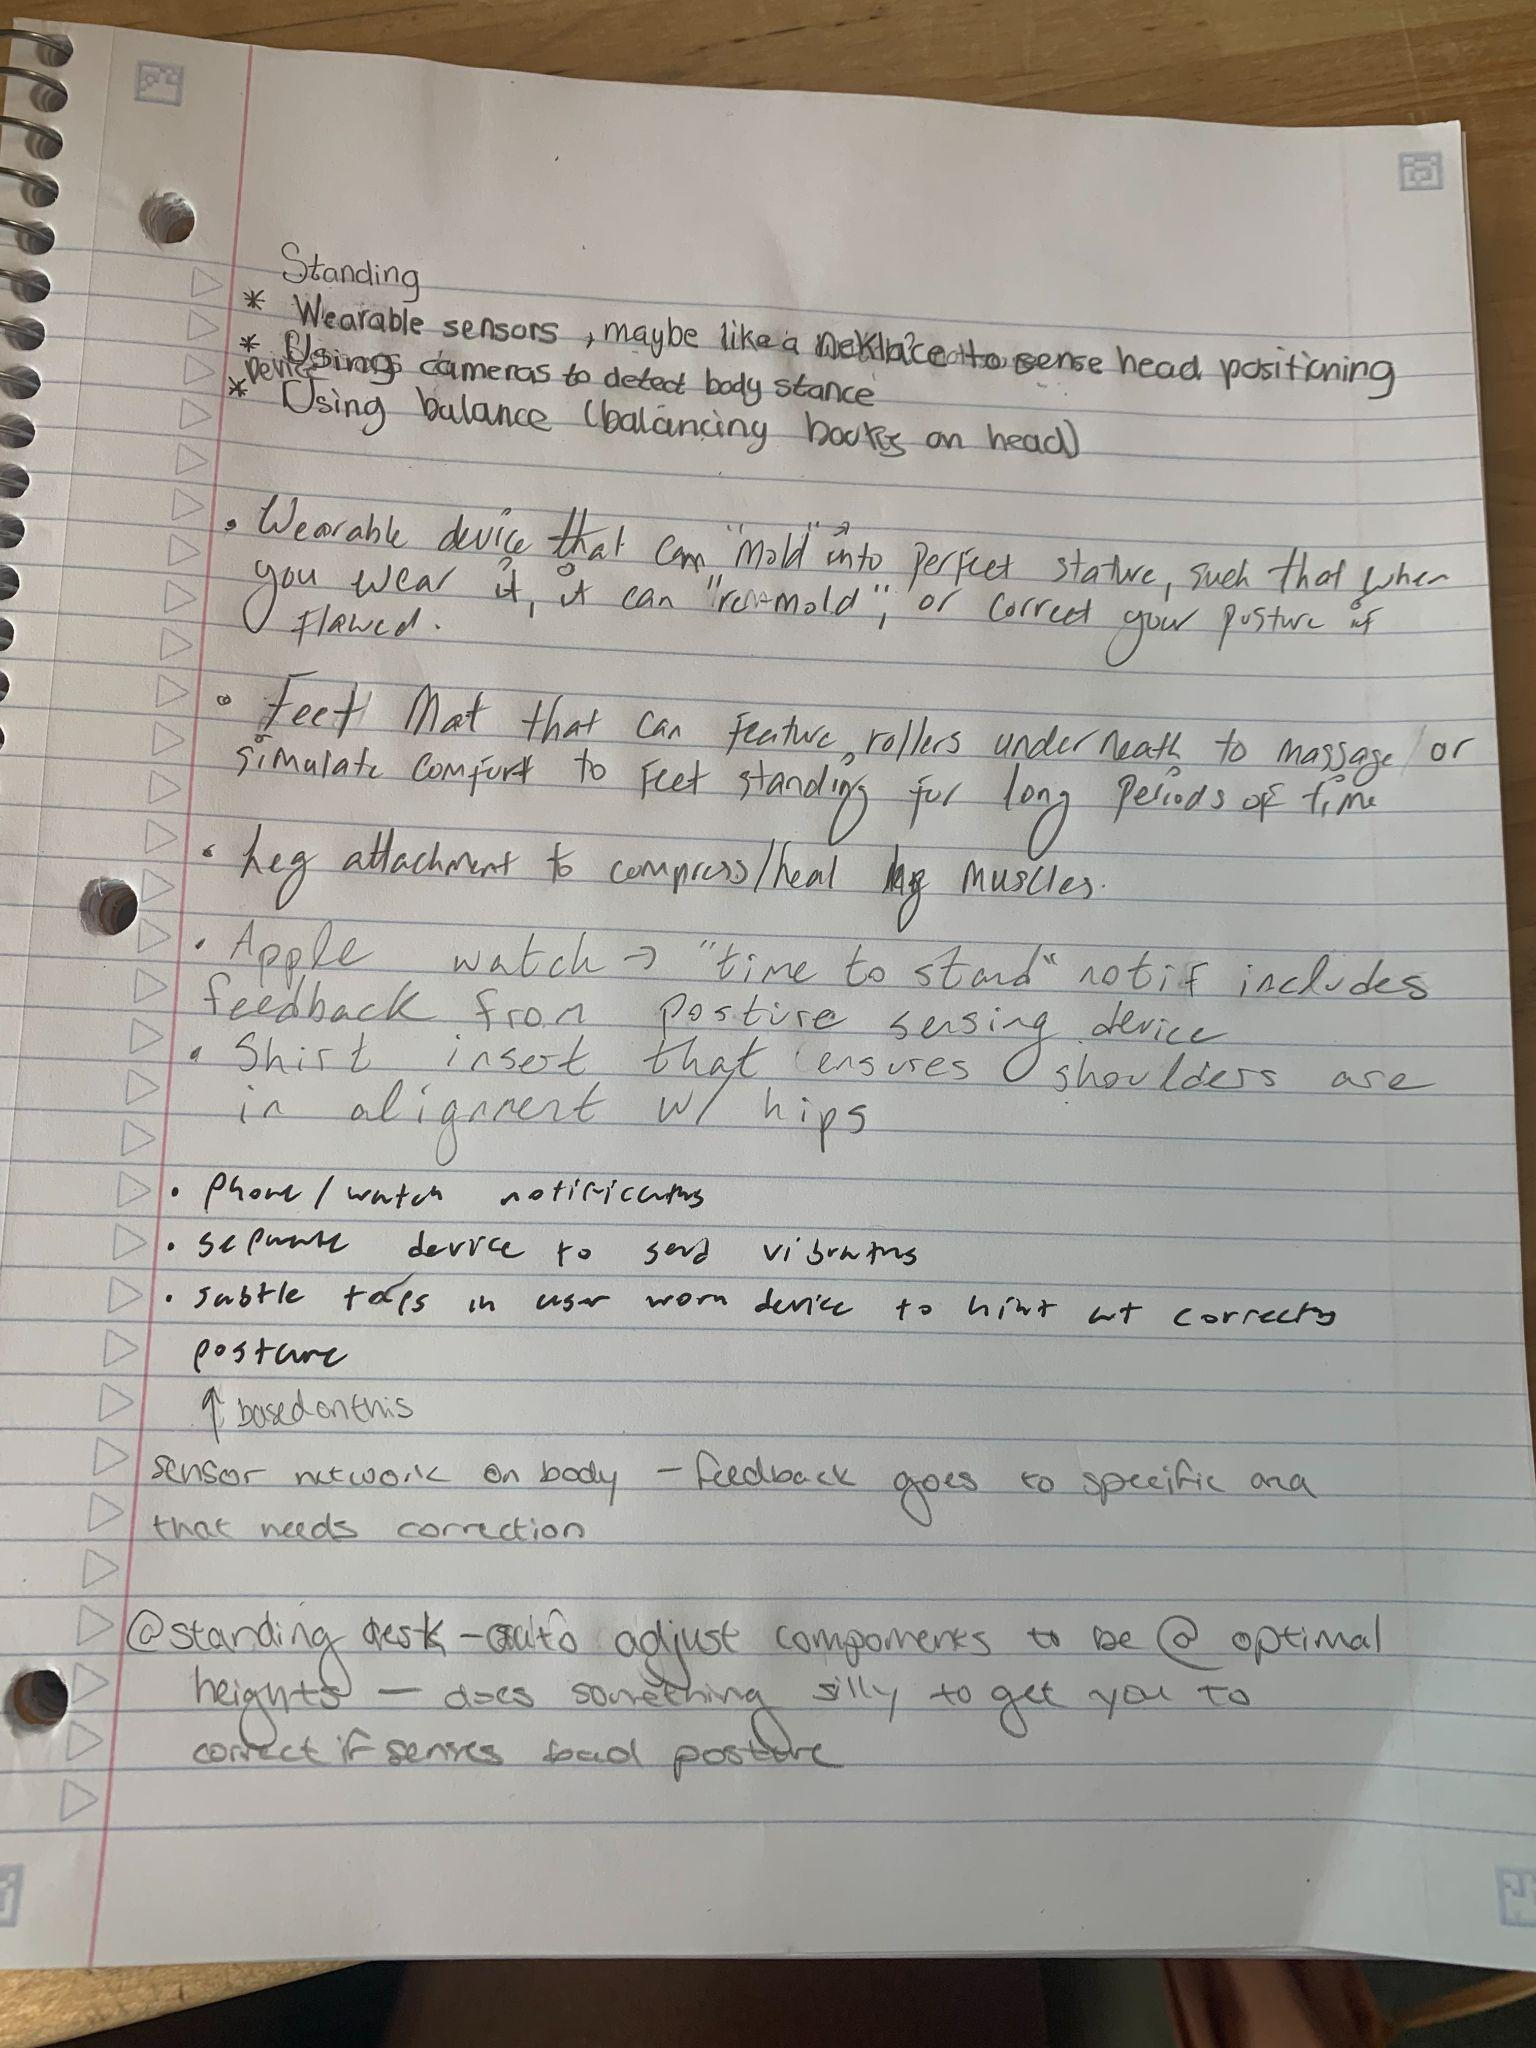 Standing
* Wearable sensors, maybe like a neklace to sense head positioning
* Using cameras to detect body stance
* Using balance (balancing books on head)
• Wearable device that can "mold" into perfect stature, such that when
you wear it, it can "re-mold", or correct your posture if
flawed.
• Feet Mat that can feature rollers underneath to massage / or
simulate comfort to feet standing for long periods of time
• Leg attachment to compress/heal leg muscles.
• Apple watch → "time to stand" notif includes
feedback from posture sensing device
• Shirt insert that ensures shoulders are
in alignment w/ hips
• phone/watch notifications
• separate device to send vibrations
• subtle taps in user worn device to hint at correcting
posture
↑ based on this
sensor network on body - feedback goes to specific area
that needs correction
@standing desk - auto adjust components to be @ optimal
heights - does something silly to get you to
correct if senses bad posture